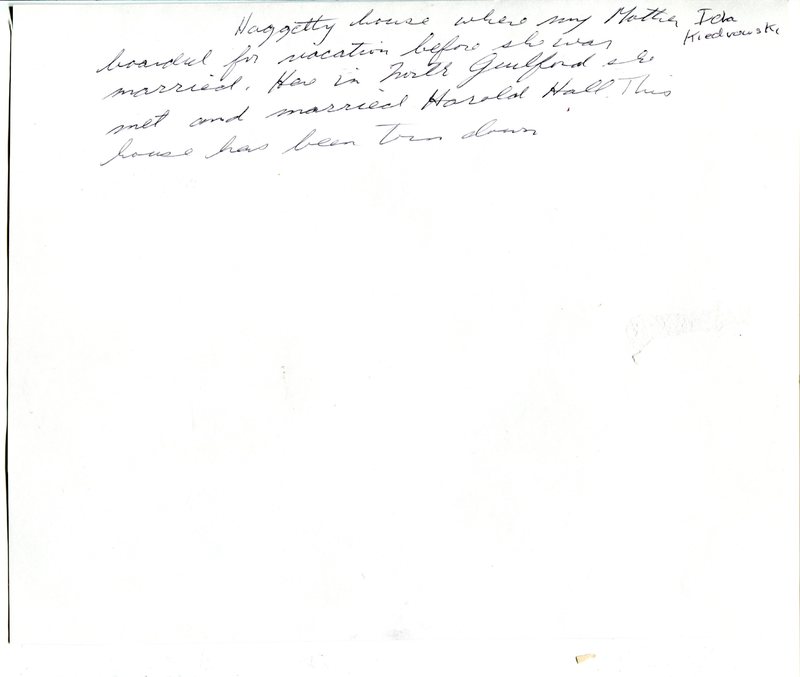 Haggetty house where my Mother Ida Kiedrowski
boarded for vacation before she was
married. Here in North Guilford she
met and married Harold Hall. This
house has been torn down